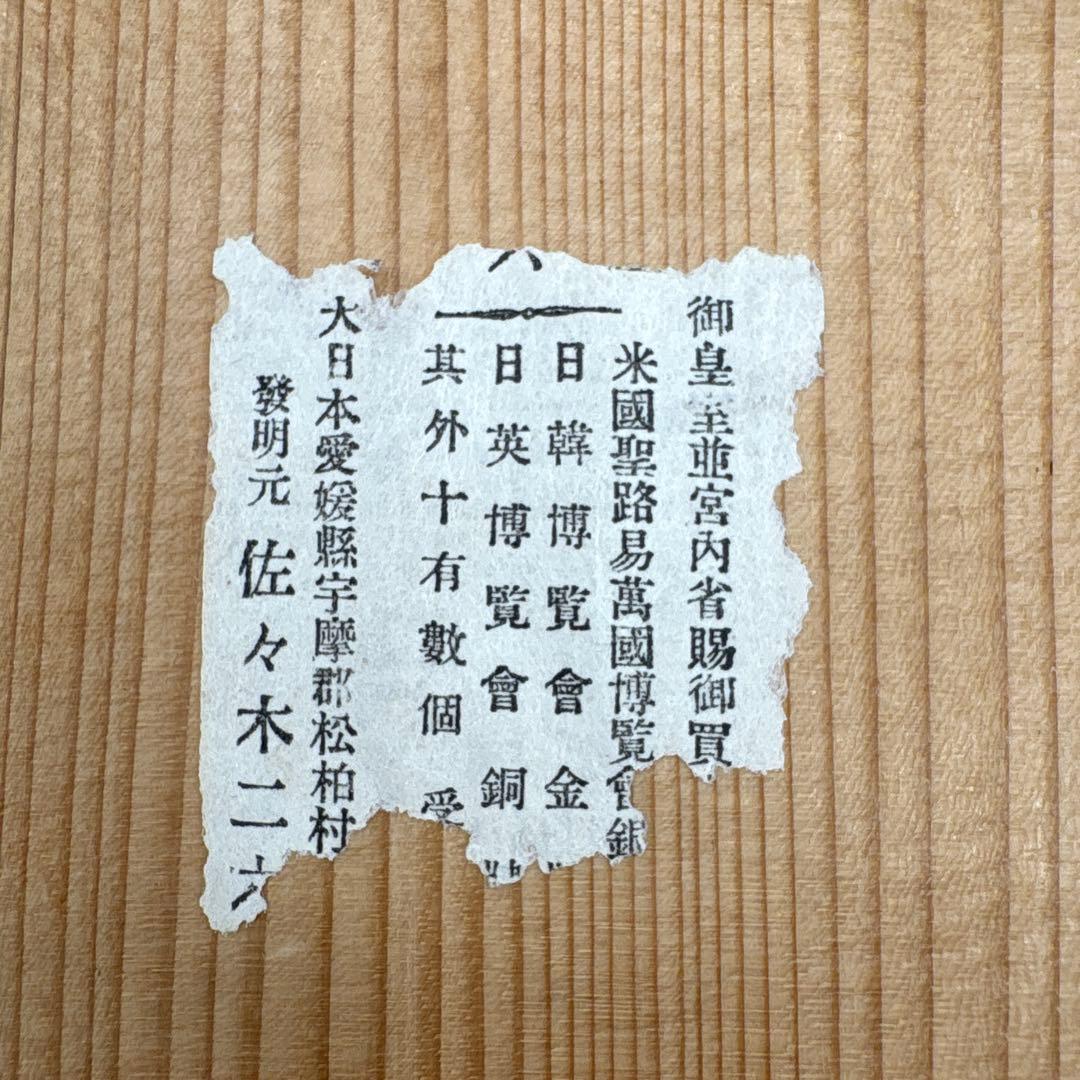 御皇室並宮内省賜御買
米國聖路易萬國博覧會銀
日韓博覧會金
日英博覧會銅
其外十有數個受
大日本愛媛縣宇摩郡松柏村
發明元 佐々木二六